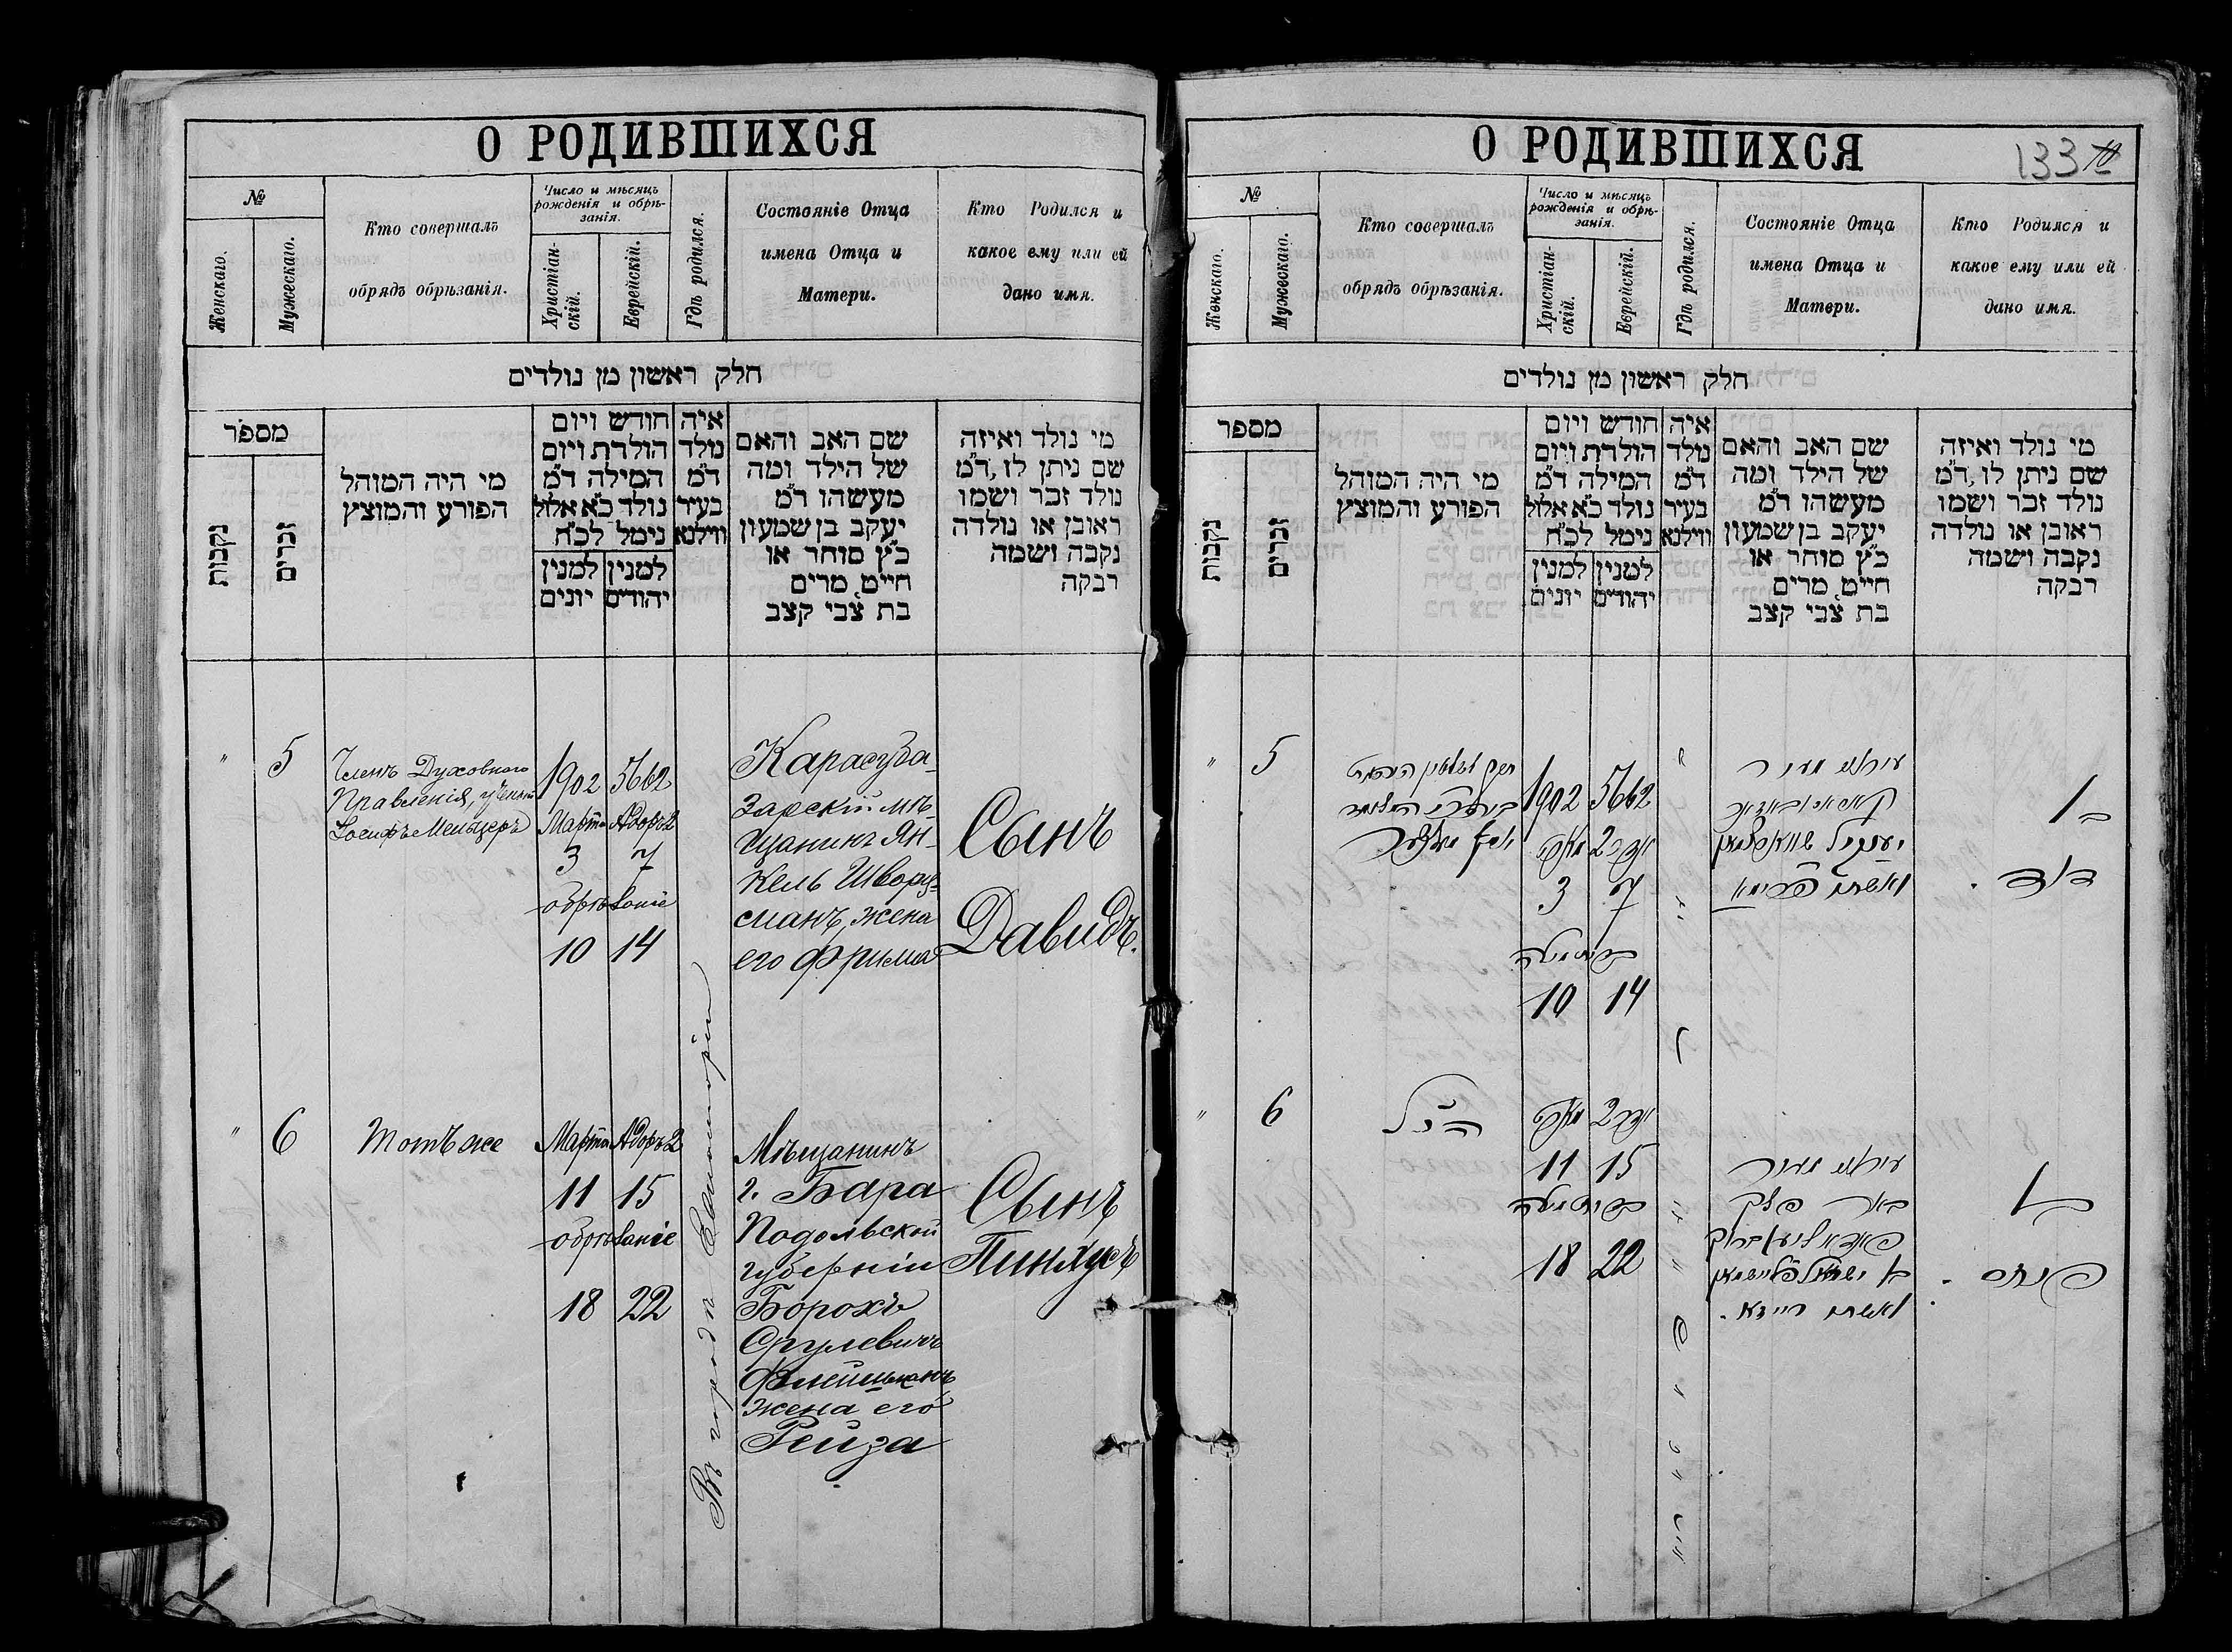 О РОДИВШИХСЯ
№
Женскаго.
Мужескаго.
Кто совершалъ
обрядъ обрѣзанія.
Число и мѣсяцъ
рожденія и обрѣ-
занія.
Христіан-
скій.
Еврейскій.
Гдѣ родился.
Состояніе Отца
имена Отца и
Матери.
Кто Родился и
какое ему или ей
дано имя.
חלק ראשון מן נולדים
מספר
נקבות
זכרים
מי היה המוהל
הפורע והמוצץ
חודש ויום
הולדת ויום
המילה ד"מ
נולד כ"א אלול
נימל לכ"ח
למנין
יונים
למנין
יהודים
איה
נולד
ד"מ
בעיר
ווילנא
שם האב והאם
של הילד ומה
מעשהו ד"מ
יעקב בן שמעון
כ"ץ סוחר או
חייט, מרים
בת צבי קצב
מי נולד ואיזה
שם ניתן לו, ד"מ
נולד זכר ושמו
ראובן או נולדה
נקבה ושמה
רבקה
" 5
Членъ Духовнаго
Правленія, ученый
Іосифъ Мельцеръ
1902 5662
Марта Адоръ 2
3 7
обрѣзаніе
10 14
Карасуба-
зарскій мѣ-
щанинъ Ян-
кель Шварц-
манъ, жена
его Фрима
Сынъ
Давидъ.
" 6
Тотъ же
Марта Адоръ 2
11 15
обрѣзаніе
18 22
Въ городѣ Евпаторіи
Мѣщанинъ
г. Бара
Подольской
губерніи
Борохъ
Сруlевичъ
Флейшманъ
жена его
Рейза
Сынъ
Пинхусъ
О РОДИВШИХСЯ
133
№
Женскаго.
Мужескаго.
Кто совершалъ
обрядъ обрѣзанія.
Число и мѣсяцъ
рожденія и обрѣ-
занія.
Христіан-
скій.
Еврейскій.
Гдѣ родился.
Состояніе Отца
имена Отца и
Матери.
Кто Родился и
какое ему или ей
дано имя.
חלק ראשון מן נולדים
מספר
נקבות
זכרים
מי היה המוהל
הפורע והמוצץ
חודש ויום
הולדת ויום
המילה ד"מ
נולד כ"א אלול
נימל לכ"ח
למנין
יונים
למנין
יהודים
איה
נולד
ד"מ
בעיר
ווילנא
שם האב והאם
של הילד ומה
מעשהו ד"מ
יעקב בן שמעון
כ"ץ סוחר או
חייט, מרים
בת צבי קצב
מי נולד ואיזה
שם ניתן לו, ד"מ
נולד זכר ושמו
ראובן או נולדה
נקבה ושמה
רבקה
" 5
יוסף מעלצער
1902 5662
מארט אדר 2
3 7
ברית מילה
10 14
עירוני מעיר
קאראסובאזאר
יענקיל שווארצמאן
ואשתו פרימא
בן
דוד
" 6
הנ"ל
מארט אדר 2
11 15
ברית מילה
18 22
עירוני מעיר
באר פלך
פאדאליע ברוך
בן ישראל פליישמאן
ואשתו רייזא
בן
פינחס